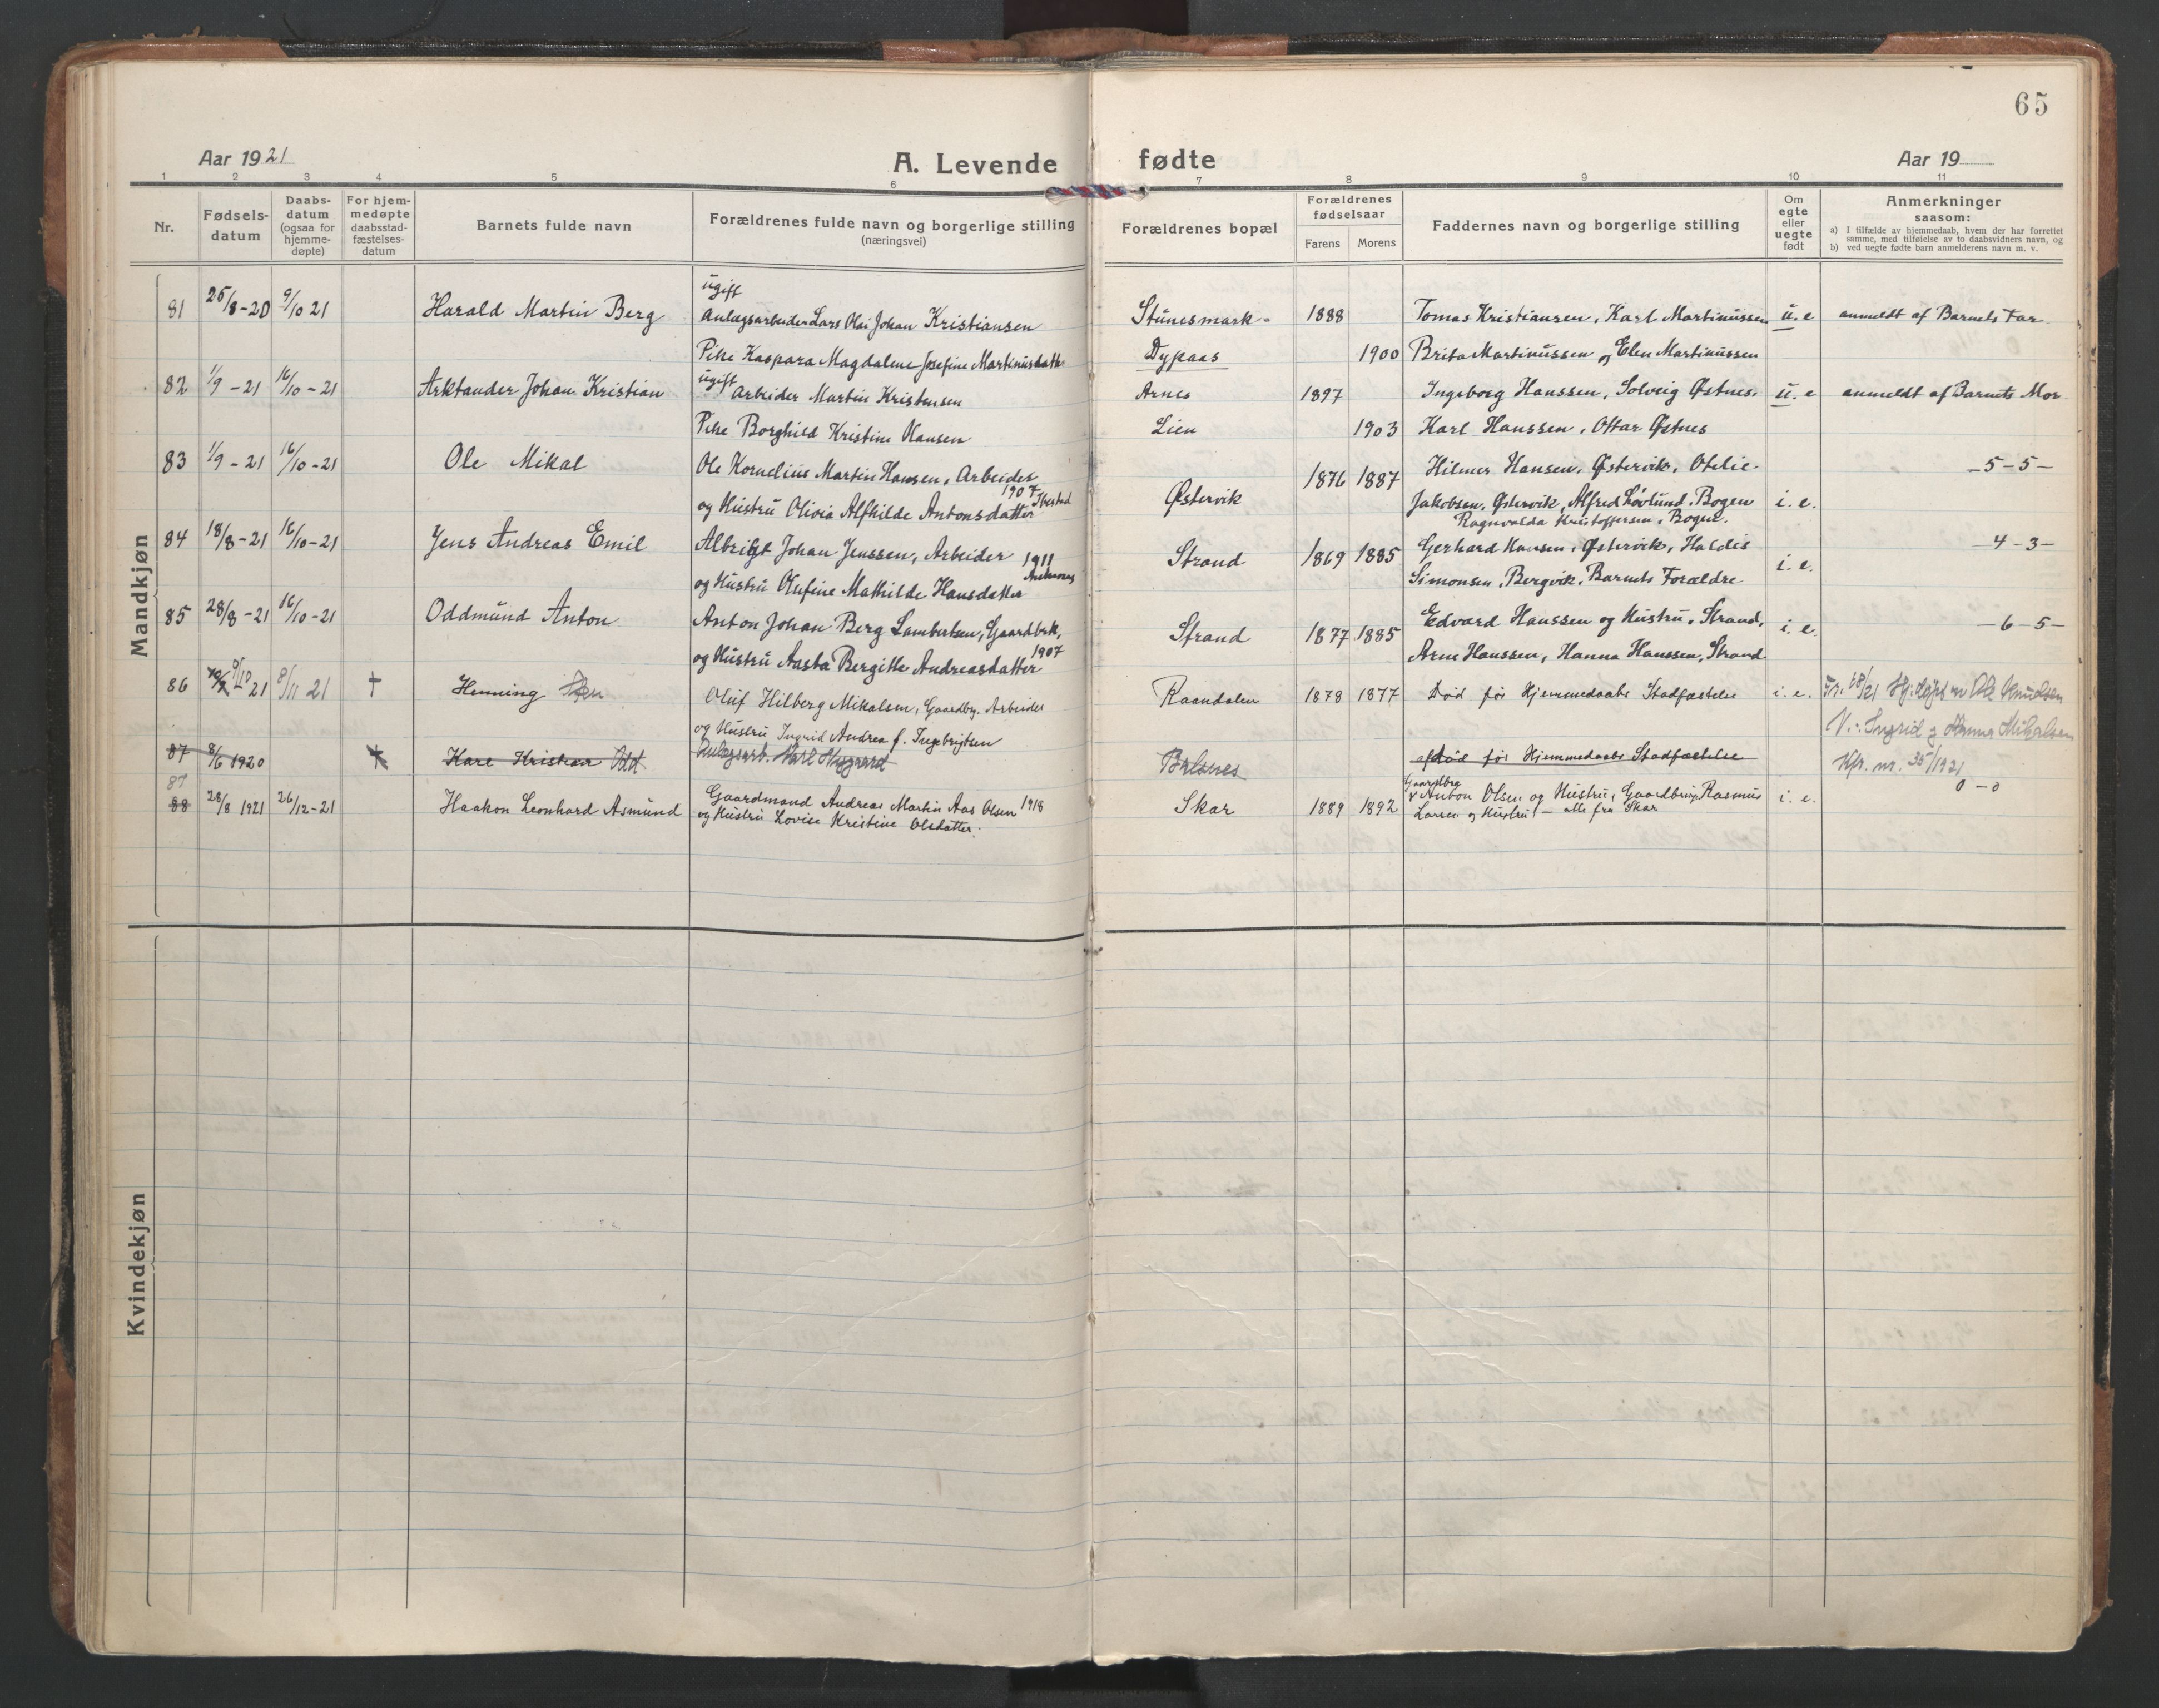 65
Aar 1921 A. Levende fødte Aar 19
1 2 3 4 5 6 7 8 9 10 11
Nr. Fødsels-datum Daabs-datum (ogsaa for hjemme-døpte) For hjem-medøpte daabsstad-fæstelses-datum Barnets fulde navn Forældrenes fulde navn og borgerlige stilling (næringsvei) Forældrenes bopæl Forældrenes fødselsaar Farens Morens Faddernes navn og borgerlige stilling Om egte eller uegte født Anmerkninger saasom:
a) I tilfælde av hjemmedaab, hvem der har forrettet samme, med tilføielse av to daabsvidners navn, og
b) ved uegte fødte barn anmelderens navn m. v.
Mandkjøn
ugift
81 25/8-20 9/10 21 Harald Martin Berg Anlagsarbeider Lars Olai Johan Kristiansen Stunesmark 1888 Tomas Kristiansen, Karl Martinussen u.e anmeldt af Barnets Far
Pike Kaspara Magdalene Josefine Martinusdatter Dypaas 1900 Brita Martinussen og Elen Martinussen
82 1/9-21 16/10-21 Arktander Johan Kristian ugift Arbeider Martin Kristensen Arnes 1897 Ingeborg Hanssen, Solveig Østnes, u.e anmeldt af Barnets Mor
Pike Borghild Kristine Hansen Lien 1903 Karl Hanssen, Ottar Østnes
83 1/9-21 16/10-21 Ole Mikal Ole Kornelius Martin Hansen, Arbeider 1876 1887 Hilmer Hansen, Østervik, Otelie -5-5-
og Hustru Olivia Alfhilde Antonsdatter 1907 Ibestad Østervik Jakobsen, Østervik, Alfred Løvlund, Bogen i.e.
Ragnvalda Kristoffersen, Bogen.
84 18/8-21 16/10-21 Jens Andreas Emil Albrigt Johan Jenssen, Arbeider 1911 Strand 1869 1885 Gerhard Hansen, Østervik, Haldis i.e. -4-3-
og Hustru Olufine Mathilde Hansdatter Simonsen, Bergvik, Barnets Forældre
85 28/8-21 16/10-21 Oddmund Anton Anton Johan Berg Lambertsen, Gaardbrk, Strand 1877 1885 Edvard Hanssen og Hustru, Strand, i.e. -6-5-
og Hustru Aasta Bergitte Andreasdatter 1907 Arne Hanssen, Hanna Hanssen, Strand
86 9/10 21 8/11 21 † Henning Oluf Hilberg Mikalsen, Gaardbr. Arbeider Raandalen 1878 1877 Død før Hjemmedaabs Stadfæstelse i.e. Hj.døpt v. Ole Knudsen
og Hustru Ingrid Andrea f. Ingebrigtsen V.: Ingrid og Hanna Mikalsen
87 8/6 1920 Kare Kristian Odd Anlagsarb. Karl Nygaard Bølsnes Død før Hjemmedaabs Stadfæstelse Kfr. nr. 35/1921
87
88 28/8 1921 26/12-21 Haakon Leonhard Asmund Gaardmand Andreas Martin Aas Olsen 1918 Skar 1889 1892 Gaardbr. Anton Olsen og Hustru, Gaardbrug. Rasmus i.e. 0-0
og Hustru Lovise Kristine Olsdatter. Larsen og Hustru - alle fra Skar
Kvindekjøn